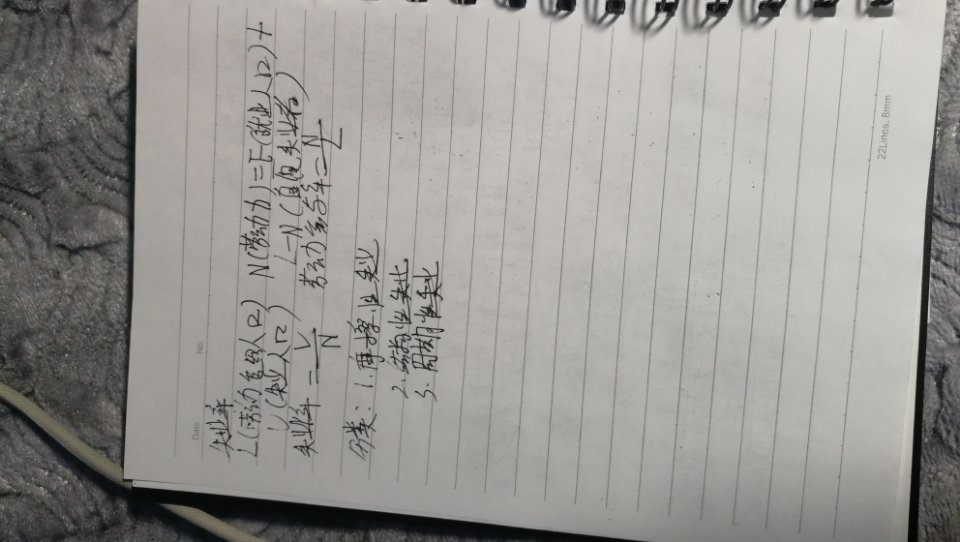 Date
No
失业率
L(劳动力总人口) N(劳动力)=E(就业人口)+
U(失业人口) L-N(自愿失业者)
失业率=U/N 劳动力参与率=N/L
分类:1.摩擦性失业
2.结构性失业
3.周期性失业
22Lines, 8mm